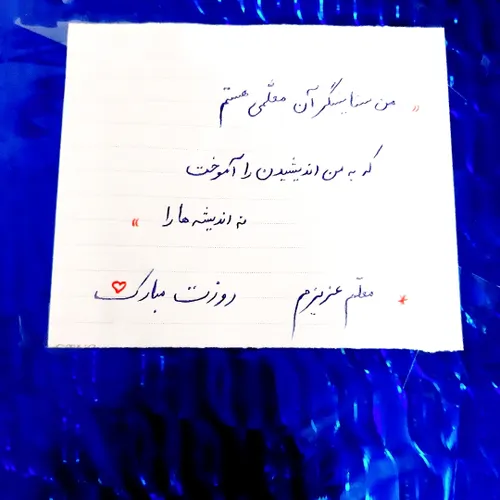 » من ستایشگر آن معلّمی هستم
که به من اندیشیدن را آموخت
نه اندیشه ها را «
* معلّم عزیزم روزت مبارک ♡